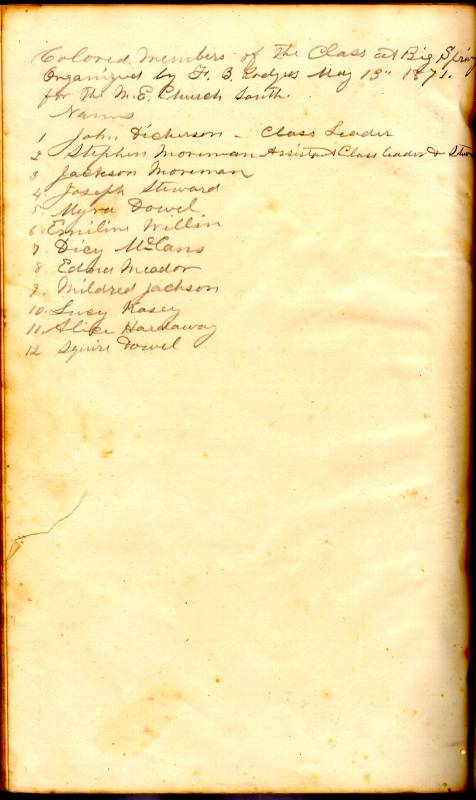 Colored Members of the Class at Big Spring
Organized by F. B. May 13th 1871.
for the M.E. Church South.
Names
1 John Dickerson - Class Leader
2 Stephen Moreman Assistant Class leader &
3 Jackson Moreman
4 Joseph Steward
5 Myra Dowel
6 Emiline Willin
7 Dicy McCans
8 Edna Meador
9 Mildred Jackson
10 Lucy Kasey
11 Alice Hardaway
12 Squire Dowel